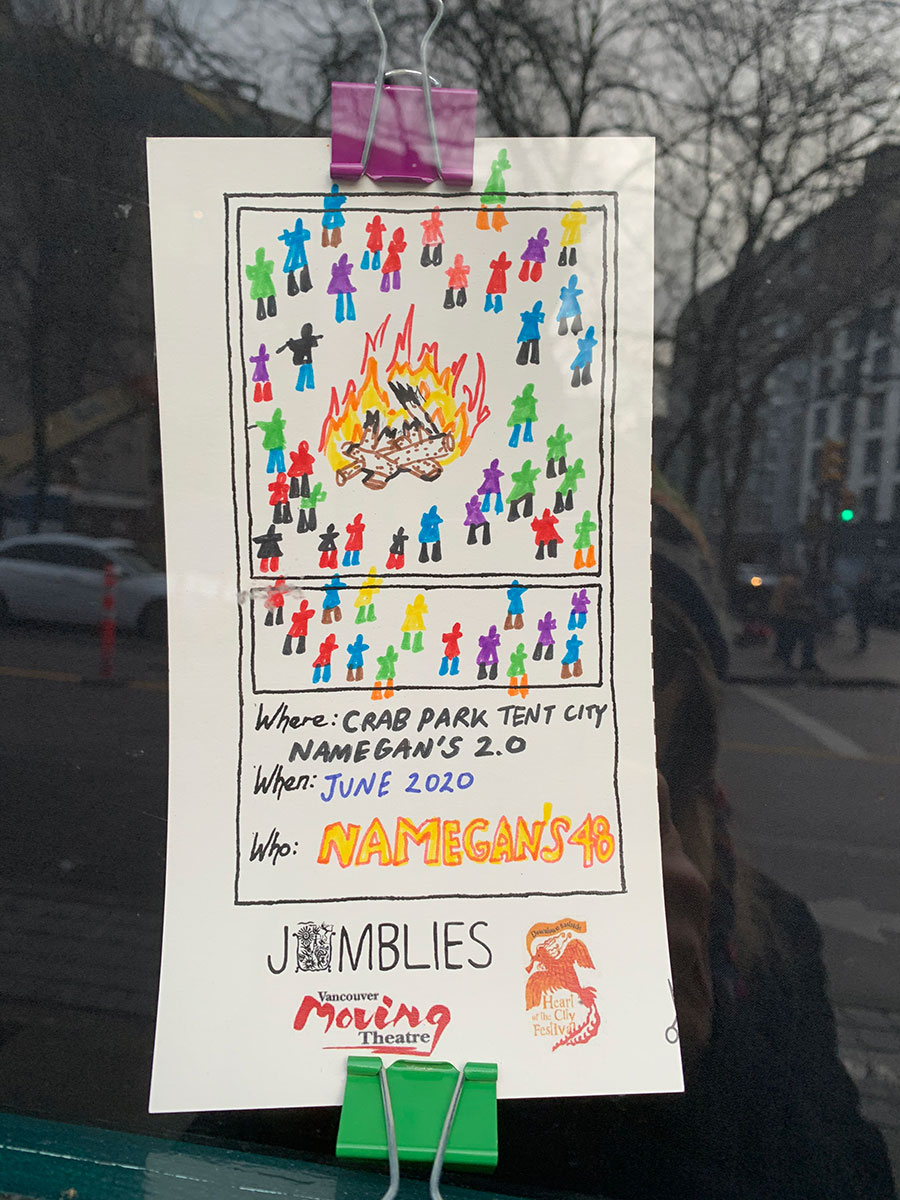 Where: CRAB PARK TENT CITY
NAMEGAN'S 2.0
When: JUNE 2020
Who: NAMEGAN'S 48
JUMBLIES
Vancouver
Moving
Theatre
Downtown Eastside
Heart
of the City
Festival